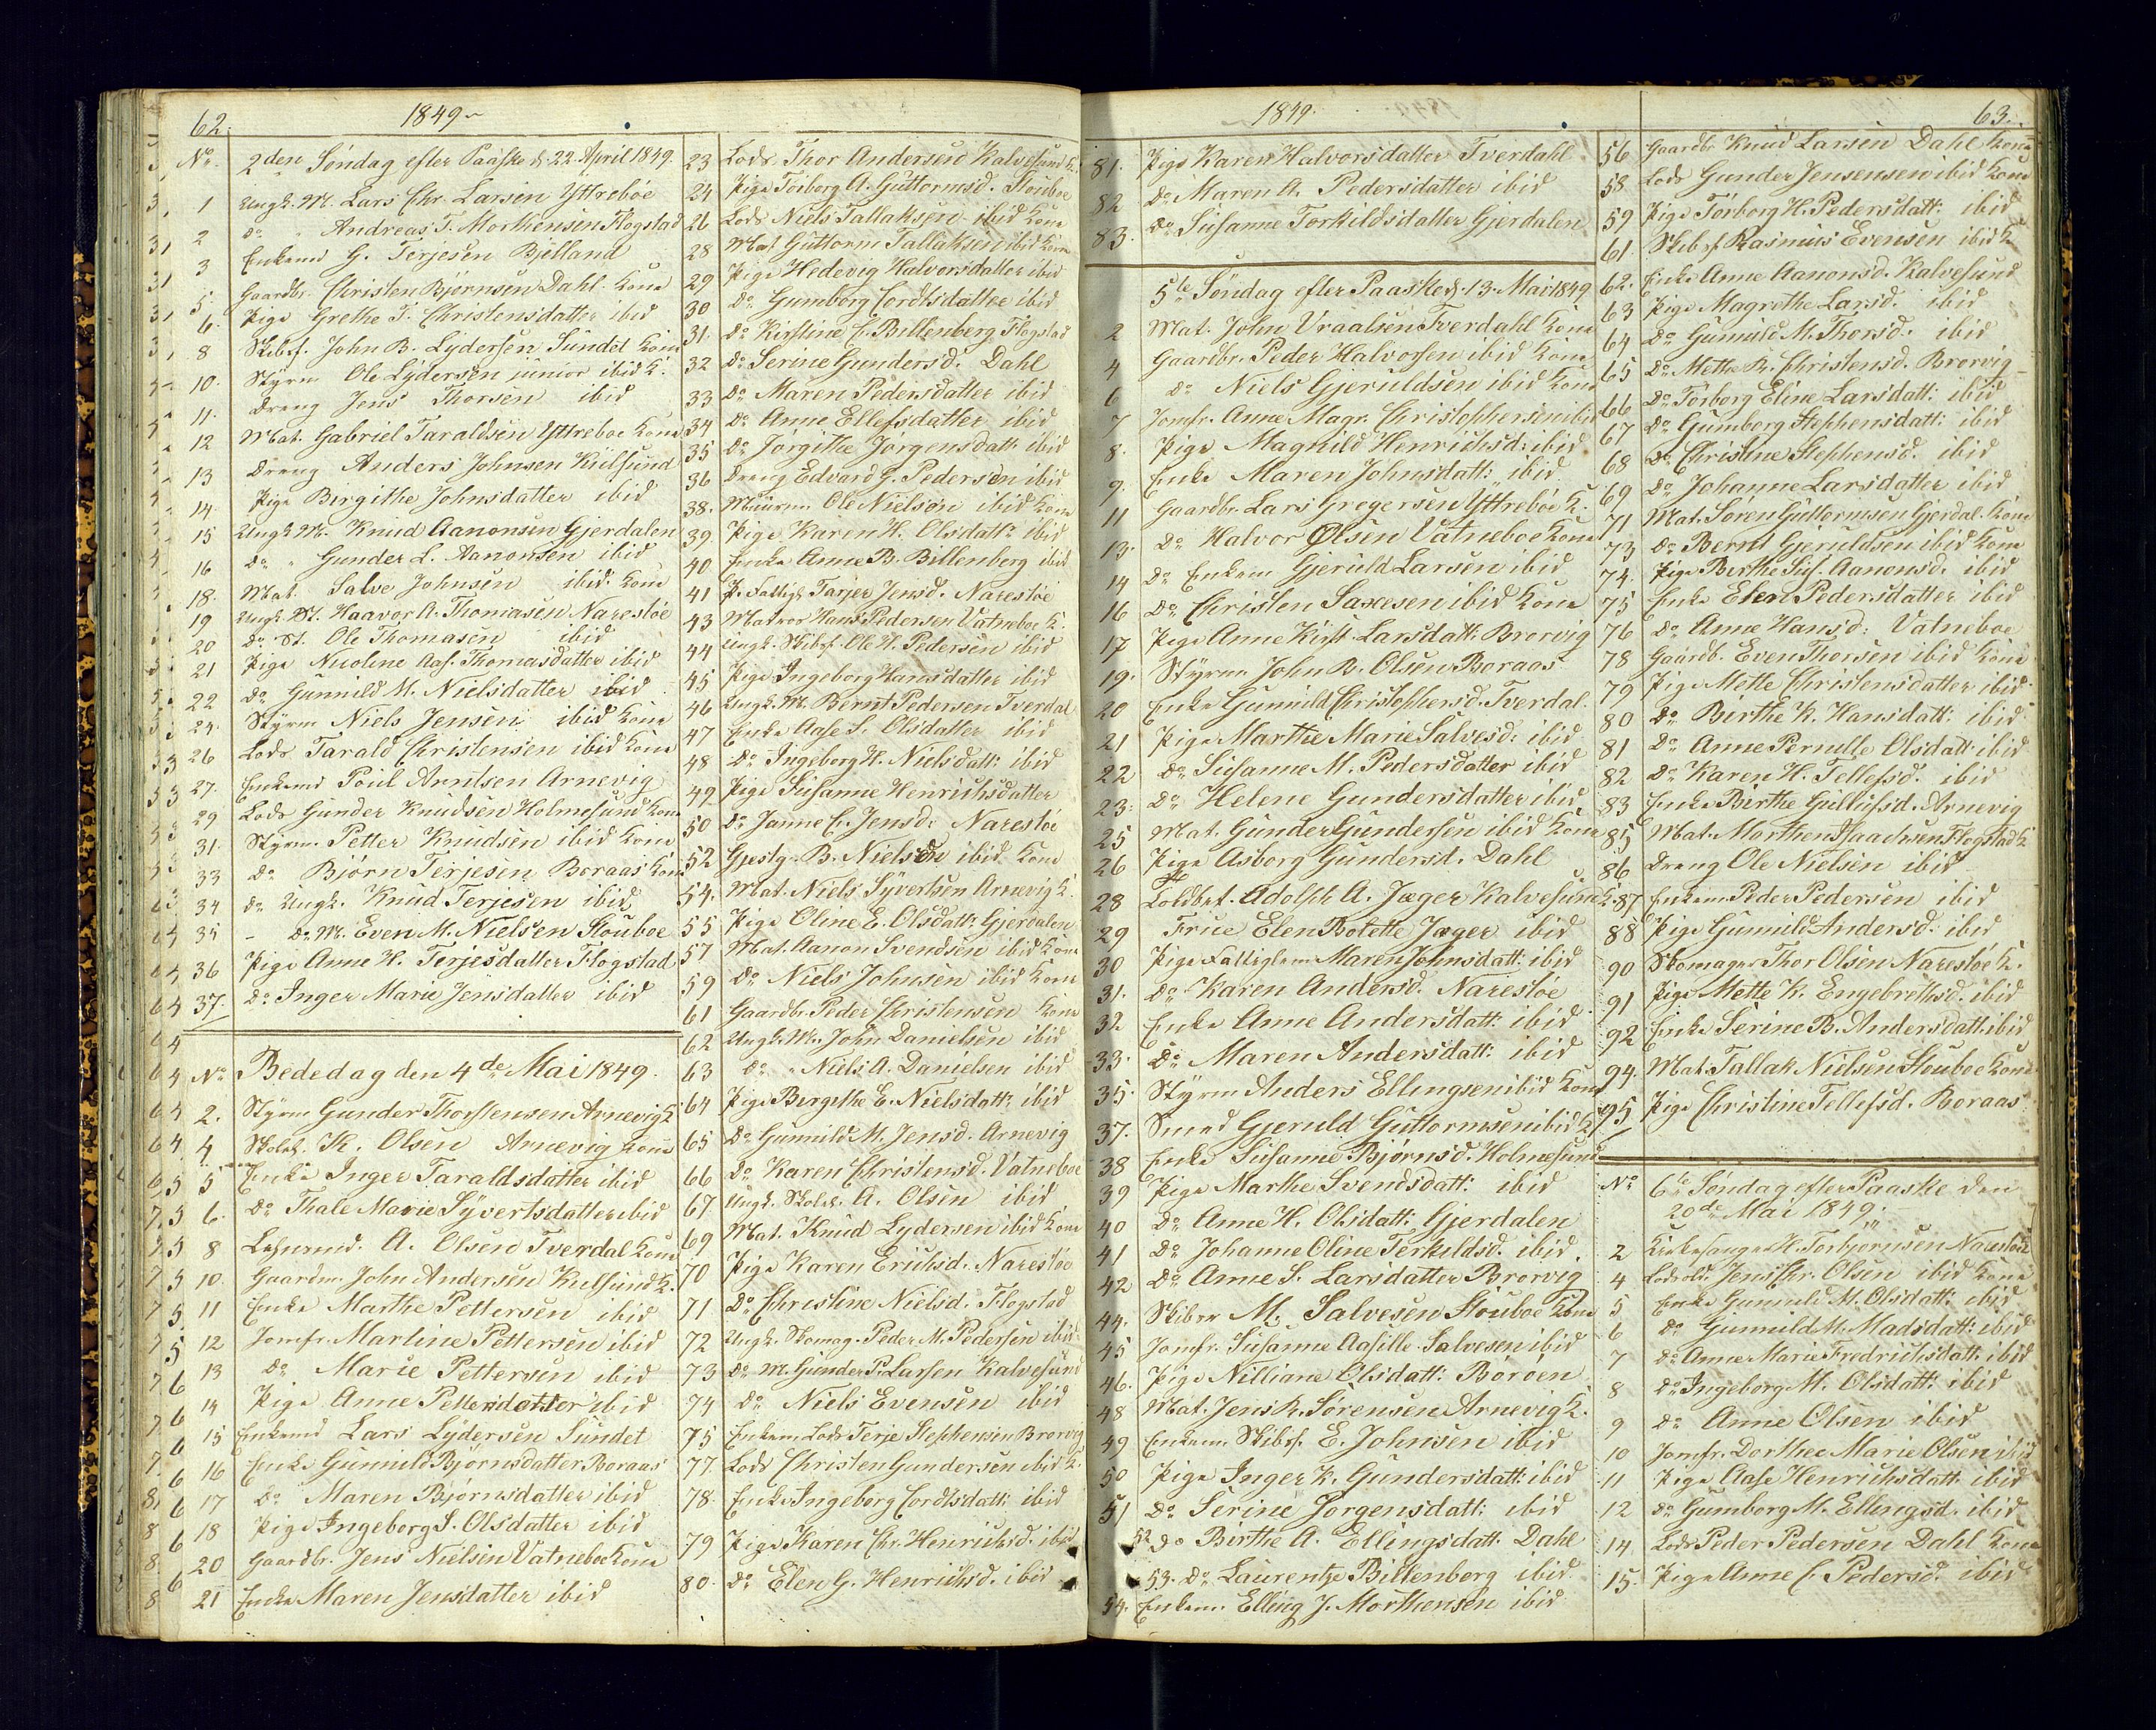 62. 1849
No. 2den Søndag efter Paaske d: 22 April 1849.
1 Ungk. M. Lars Chr. Larsen Yttrebøe
2 do " Andreas T. Morthensen Flogstad
3 Enkemd G. Terjesen Bjelland
5. Gaardbr. Christen Bjørnsen Dahl. Kone
6. Pige Grethe T. Christensdatter ibid
8 Skibsf. John B. Lydersen Sundet Kone
10. Styrm Ole Lydersen junior ibid K.
11. Dreng Jens Thorsen ibid
12 Mat. Gabriel Taraldsen Yttrebøe Kone
13 Dreng Anders Johnsen Kielsund
14. Pige Birgithe Johnsdatter ibid
15 Ungk M. Knud Aanonsen Gjerdalen
16 do " Gunder L. Aanonsen ibid
18. Mat. Salve Johnsen ibid. Kone
19 Ungk. M. Haavor A. Thomasen Narestøe
20 do St. Ole Thomasen ibid
21 Pige Nicoline Aas. Thomasdatter ibid
22 do Gunnild M. Nielsdatter ibid
24. Styrm Niels Jensen ibid Kone
26 Lods Tarald Christensen ibid Kone
27. Enkemd Poul Arntsen Arnevig
29 Lods Gunder Knudsen Holmesund Kone
31. Styrm. Petter Knudsen ibid Kone
33 do Bjørn Terjesen Boraas Kone
34 do Ungk. Knud Terjesen ibid
35 - do M. Even M. Nielsen Stouboe
36 Pige Anne H. Terjesdatter Flogstad
37. do Inger Marie Jensdatter ibid
No Bededag den 4de Mai 1849.
2. Styrm Gunder Thorstensen Arnevig K
4 Skoleh. K. Olsen Arnevig Kone
5 Enke Inger Taraldsdatter ibid
6. do Thale Marie Syvertsdatter ibid
8 Lehnsmd. A. Olsen Tverdal Kone
10. Gaardm. John Andersen Kielsund K.
11 Enke Marthe Pettersen ibid
12 Jomfr. Martine Pettersen ibid
13 do Marie Pettersen ibid
14 Pige Anne Pettersdatter ibid
15 Enkemd Lars Lydersen Sundet
16 Enke Gunnild Bjørnsdatter Boraas
17 do Maren Bjørnsdatter ibid
18 Pige Ingeborg S. Olsdatter ibid
20 Gaardbr. Jens Nielsen Vatneboe Kone
21 Enke Maren Jensdatter ibid
23 Lods. Thor Andersen Kalvesund K.
24 Pige Torborg A. Guttormsd. Stouboe
26 Lods Niels Tallaksen ibid Kone
28 Mat Guttorm Tallaksen ibid Kone
29 Pige Hedevig Halvorsdatter ibid
30 do Gumborg Cordtsdatter ibid
31. do Kirstine C. Billenberg Flogstad
32 do Serine Gundersd. Dahl
33 do Maren Pedersdatter ibid
34 do Anne Ellefsdatter ibid
35 do Jorgithe Jørgensdatt. ibid
36 Dreng Edvard G. Pedersen ibid
38. Muurm. Ole Nielsen ibid Kone
39 Pige Karen H. Olsdatt: ibid
40 Enke Anne B. Billenberg ibid
41 P. fattigl. Tarjer Jensd. Narestøe
43 Matros Hans Pedersen Vatneboe K.
44 Ungk. Skibsf. Ole H. Pedersen ibid
45 Pige Ingeborg Hansdatter ibid
46 Ungk. M. Bernt Pedersen Tverdal
47 Enke Aase S. Olsdatter ibid
48 do Ingeborg H. Nielsdatt: ibid
49 Pige Susanne Henrichsdatter
50 do Janne C. Jensd: Narestøe
52 Gjestg. B. Nielsen ibid Kone
54. Mat. Niels Syvertsen Arnevig K.
55 Pige Oline E. Olsdatt: Gjerdalen
57 Mat. Aanon Svendsen ibid Kone
59 do Niels Johnsen ibid Kone
61 Gaardbr. Peder Christensen Kone
62 Ungk. M. John Danielsen ibid
63 do " Niels A. Danielsen ibid
64 Pige Birgithe E. Nielsdatt: ibid
65 do Gunnild M. Jensd. Arnevig
66 do Karen Christensd. Vatneboe
67. Ungk. Skoleh. A. Olsen ibid
69 Mat. Knud Lydersen ibid Kone
70 Pige Karen Erichsd. Narestøe
71 do Christine Nielsd. Flogstad
72 Ungk. Skomag. Peder M. Pedersen ibid
73 do M. Gunder P. Larsen Kalvesund
74 do Niels Evensen ibid
75 Enkem. Lods Terje Stephensen Brorvig
77. Lods Christen Gundersen ibid K.
78. Enke Ingeborg Cordtsdatt: ibid
79 Pige Karen Chr. Henrichsd. ibid
80. do Elen G. Henrichsd. ibid
1849. 63.
81. Pige Karen Halvorsdatter Tverdahl
82 do Maren A. Pedersdatter ibid
83. do Susanne Torkildsdatter Gjerdalen
5te Søndag efter Paaske d. 13. Mai 1849
2 Mat. John Vraalsen Tverdahl Kone
4 Gaardbr. Peder Halvorsen ibid Kone
6 do Niels Gjeruldsen ibid Kone
7 Jomfr. Anne Magr. Christophersen ibid
8. Pige Magnild Henrichsd: ibid
9. Enke Maren Johnsdatt: ibid
11 Gaardbr. Lars Gregersen Yttrebøe K.
13. do Halvor Olsen Vatneboe Kone
14 do Enkem Gjeruld Larsen ibid
16 do Christen Saxesen ibid Kone
17 Pige Anne Kirst. Larsdatt: Brorvig
19. Styrm John B. Olsen Boraas
20 Enke Gunnild Christophersd. Tverdal.
21 Pige Marthe Marie Salvesd: ibid
22 do Susanne M. Pedersdatter ibid
23: do Helene Gundersdatter ibid
25 Mat. Gunder Gundersen ibid Kone
26 Pige Asborg Gundersd. Dahl
28 Toldbet. Adolph A. Jæger Kalvesund K.
29 Frue Elen Botette Jæger ibid
30 Pige fattiglem Maren Johnsdatt: ibid
31. do Karen Andersd. Narestøe
32 Enke Anne Andersdatt: ibid
33. do Maren Andersdatt: ibid
35. Styrm Anders Ellingsen ibid Kone
37. Smed Gjeruld Guttormsen ibid K.
38 Enke Susanne Bjørnsd. Holmesund
39 Pige Marthe Svendsdatt: ibid
40 do Anne H. Olsdatt: Gjerdalen
41 do Johanne Oline Terkildsd. ibid.
42 do Anne S. Larsdatter Brorvig
44. Skiber M. Salvesen Stouboe Kone
45 Jomfr. Susanne Aasille Salvesen ibid
46. Pige Nilliane Olsdatt: Borøen
48 Mat. Jens R. Sørensen Arnevig K.
49 Enkem. Skibsf. E. Johnsen ibid
50 Pige Inger K. Gundersdatt: ibid
51 do Serine Jorgensdatt: ibid
52 do Birthe A. Ellingsdatt. Dahl
53. do Laurentze Billenberg ibid
54. Enkem. Elling J. Morthensen ibid
56 Gaardbr Knud Larsen Dahl Kone
58 Lods Gunder Jensensen ibid Kone
59 Pige Torborg H. Pedersdatt: ibid
61. Skibsf. Rasmus Evensen ibid K
62. Enke Anne Aanonsd. Kalvesund
63 Pige Magrethe Larsd. ibid
64 do Gunnild M. Thorsd. ibid
65 do Mette K. Christensd. Brorvig
66 do Torborg Eline Larsdatt: ibid
67 do Gumberg Stephensdatt: ibid
68 do Christine Stephensd. ibid
69 do Johanne Larsdatter ibid
71 Mat. Søren Guttormsen Gjerdal. Kone
73 do Bernt Gjeruldsen ibid Kone
74. Pige Birthe Sus. Aanonsd. ibid
75 Enke Elen Pedersdatter ibid
76 do Anne Hansd: Vatneboe
78 Gaardb. Even Thorsen ibid Kone
79 Pige Mette Christensdatter ibid
80 do Birthe K. Hansdatt: ibid
81 do Anne Pernille Olsdatt: ibid
82 do Karen H. Tellefsd. ibid
83 Enke Birthe Gullufsd. Arnevig
85 Mat. Morthen Isaachsen Flogstad K
86 Dreng Ole Nielsen ibid
87 Enkem. Peder Pedersen ibid
88 Pige Gunnild Andersd. ibid
90 Skomager Thor Olsen Narestøe K.
91 Pige Mette K. Engebrethsd. ibid
92 Enke Serine B. Andersdatt. ibid
94. Mat. Tallak Nielsen Stouboe Kone
95 Pige Christine Tellefsd. Boraas
No 6te Søndag efter Paaske den
20de Mai 1849.
2 Kirkesanger H. Torbjørnsen Narestøe K
4 Lodsold. Jens Chr. Olsen ibid Kone
5 Enke Gunnild M. Olsdatt: ibid
6 do Gunnuld M. Madsdatt: ibid
7 do Anne Marie Fredrichsdatt. ibid
8 do Ingeborg M. Olsdatt: ibid
9 do Anne Olsen ibid
10 Jomfr. Dorthea Marie Olsen ibid
11 Pige Aase Henrichsdatt. ibid
12 do Gumborg M. Ellingsd. ibid
14. Lods Peder Pedersen Dahl Kone
15. Pige Anne C. Pedersd. ibid